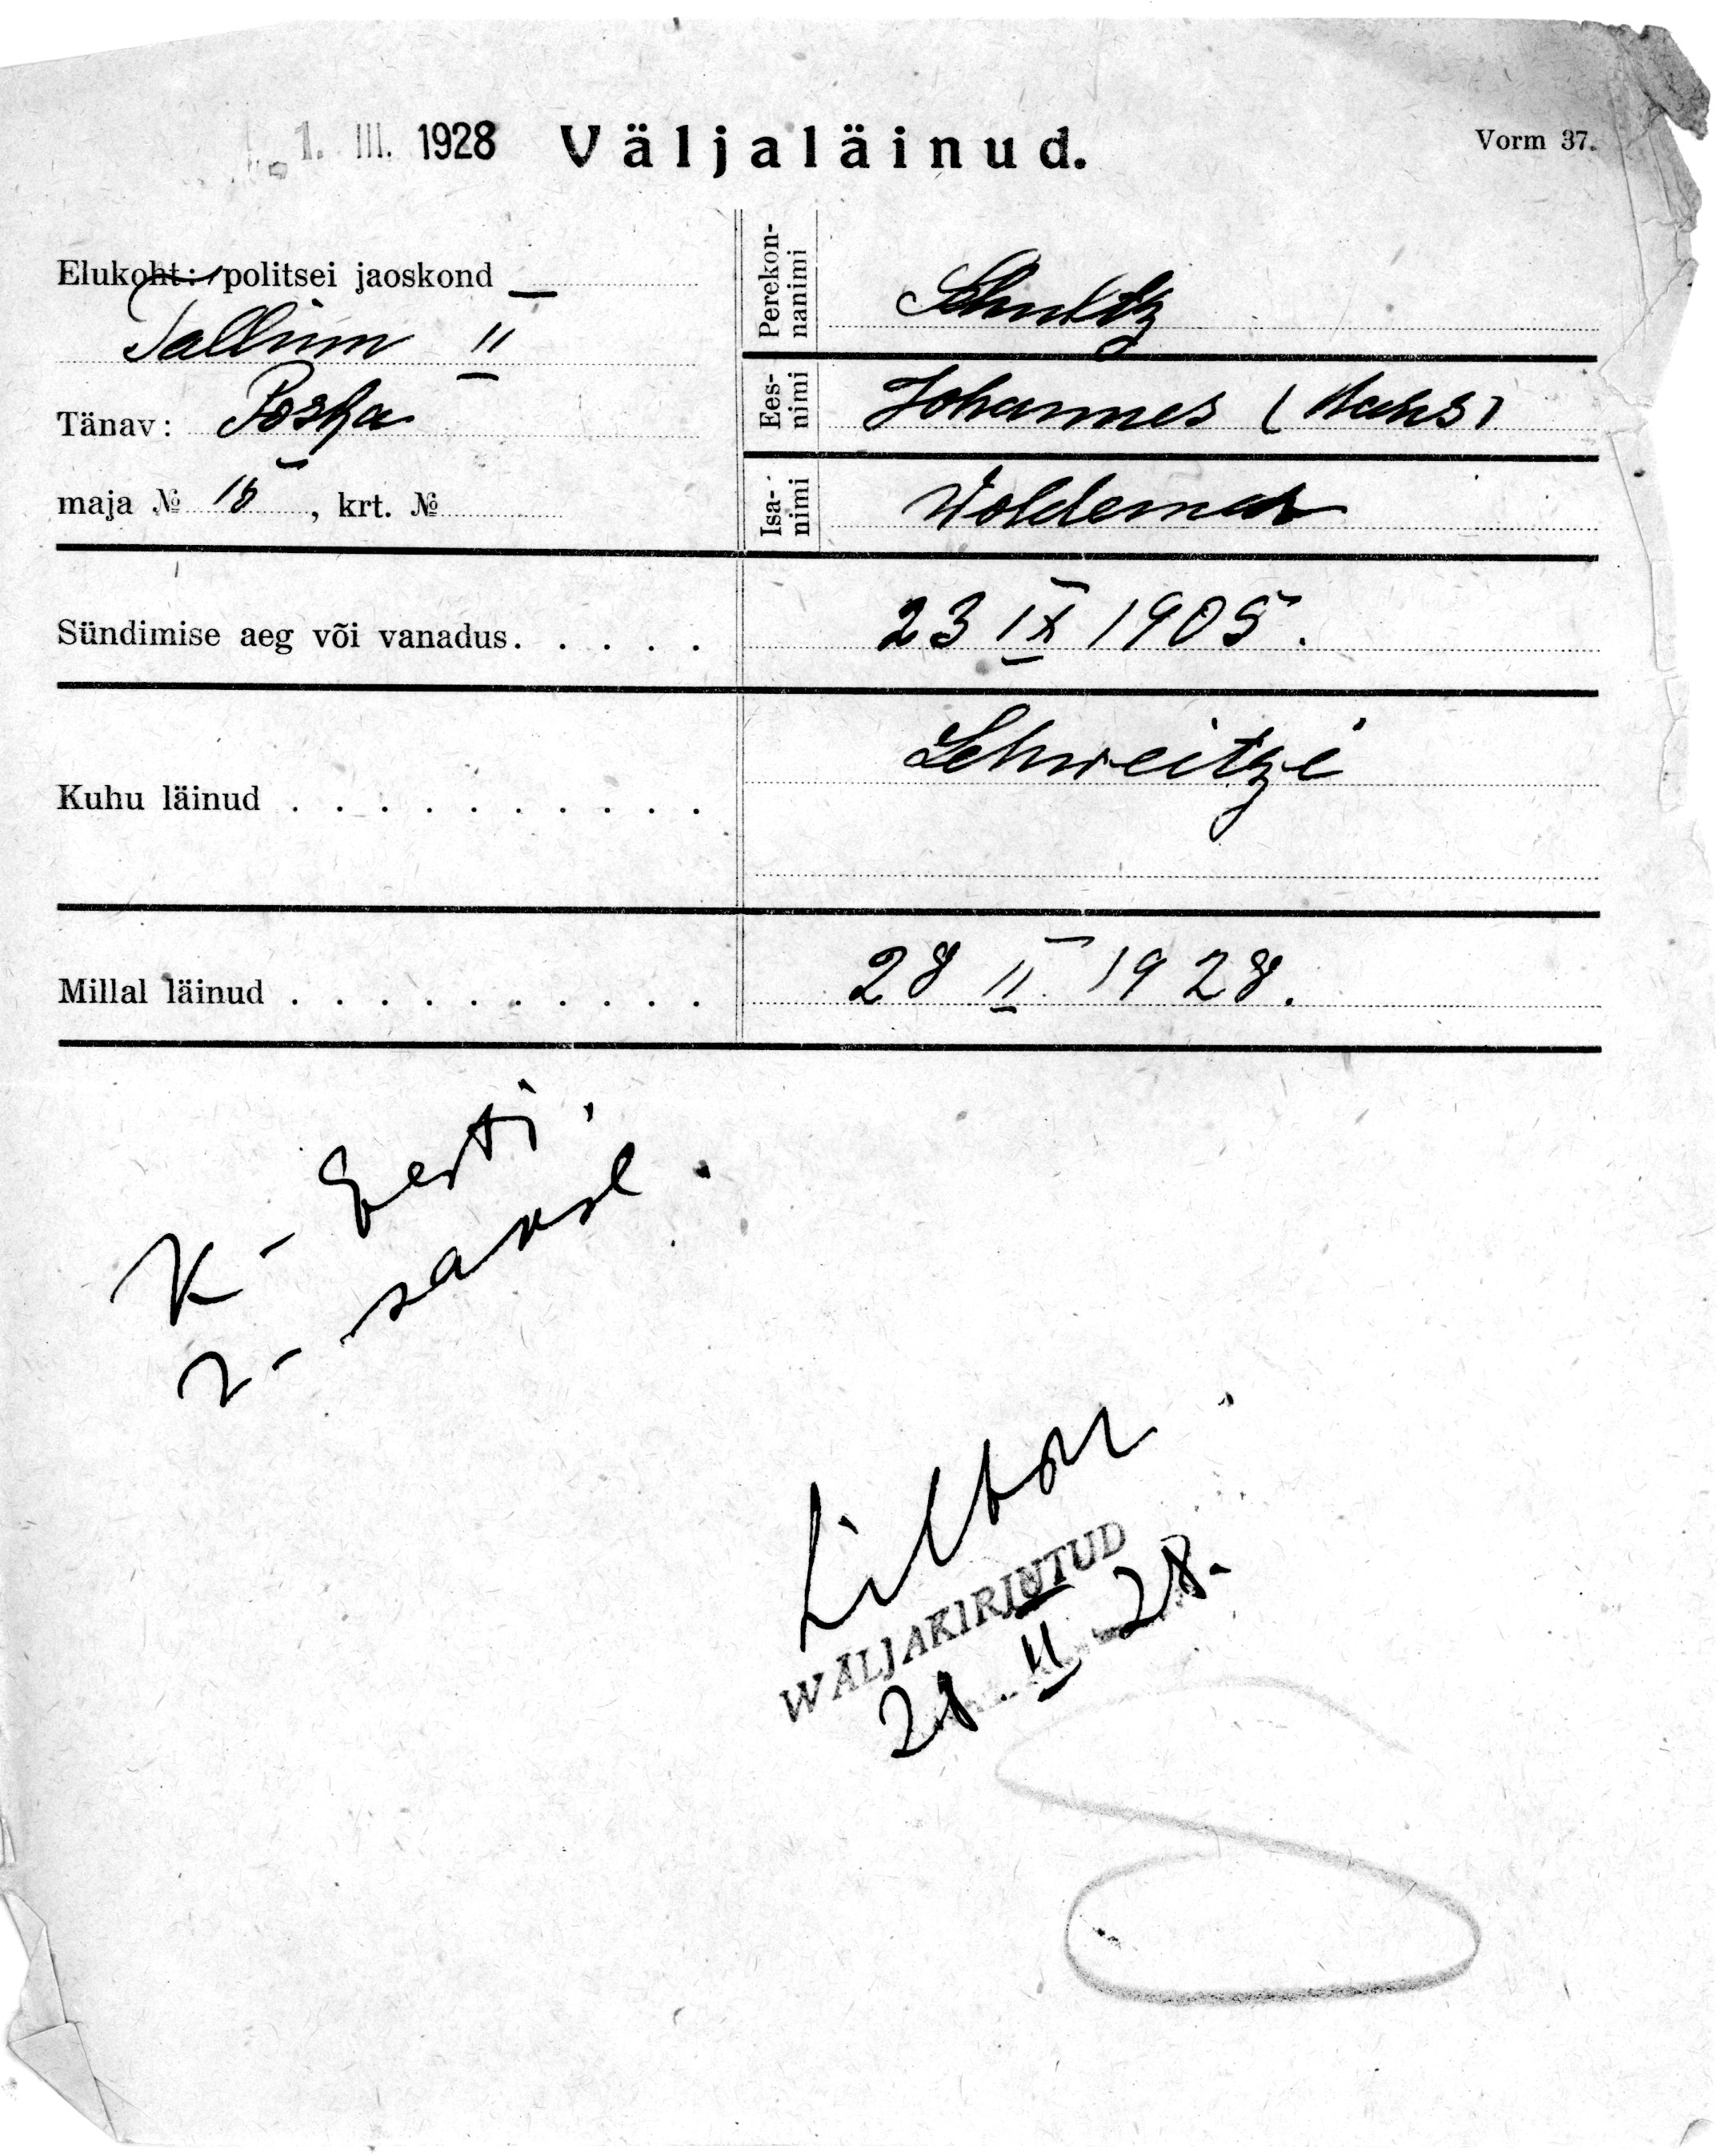 1. III. 1928 Väljaläinud. Vorm 37.
Elukoht: politsei jaoskond
Tallinn II
Tänav: Poska
maja № 18, krt. №
Perekon-
nanimi
Schultz
Ees-
nimi
Johannes (Hans)
Isa-
nimi
Woldemar
Sündimise aeg või vanadus. . . . . 23 IX 1905.
Kuhu läinud . . . . . . . . . . Schweitzi
Millal läinud . . . . . . . . . . 28 II 1928.
K - Eesti.
r - saksl.
WÄLJAKIRJUTUD
28. II 28.